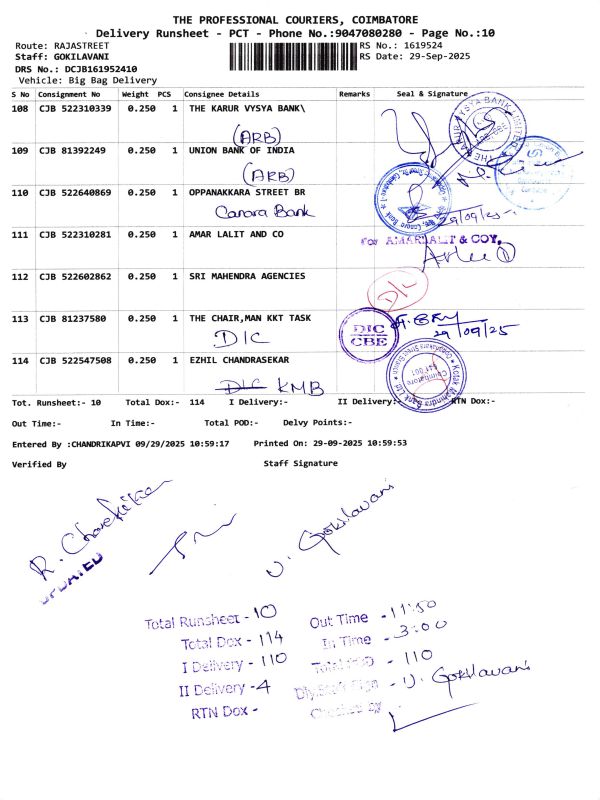 THE PROFESSIONAL COURIERS, COIMBATORE
Delivery Runsheet - PCT - Phone No.:9047080280 - Page No.:10
Route: RAJASTREET RS No.: 1619524
Staff: GOKILAVANI RS Date: 29-Sep-2025
DRS No.: DCJB161952410
Vehicle: Big Bag Delivery
S No Consignment No Weight PCS Consignee Details Remarks Seal & Signature
108 CJB 522310339 0.250 1 THE KARUR VYSYA BANK\
(ARB)
109 CJB 81392249 0.250 1 UNION BANK OF INDIA
(ARB)
110 CJB 522640869 0.250 1 OPPANAKKARA STREET BR
Canara Bank 29/09/25
111 CJB 522310281 0.250 1 AMAR LALIT AND CO
For AMARLALIT & COY,
112 CJB 522602862 0.250 1 SRI MAHENDRA AGENCIES
D/L
113 CJB 81237580 0.250 1 THE CHAIR,MAN KKT TASK
DIC DIC CBE 29/09/25
114 CJB 522547508 0.250 1 EZHIL CHANDRASEKAR
DIC KMB
Kotak Mahindra Bank Ltd Coimbatore 641 001
Tot. Runsheet:- 10 Total Dox:- 114 I Delivery:- II Delivery:- RTN Dox:-
Out Time:- In Time:- Total POD:- Delvy Points:-
Entered By :CHANDRIKAPVI 09/29/2025 10:59:17 Printed On: 29-09-2025 10:59:53
Verified By Staff Signature
UPDATED
V. Gokilavani
Total Runsheet - 10 Out Time - 11:50
Total Dox - 114 In Time - 3:00
I Delivery - 110 Total POD - 110
II Delivery - 4 Dly.Staff Sign - V. Gokilavani
RTN Dox - Checked By -